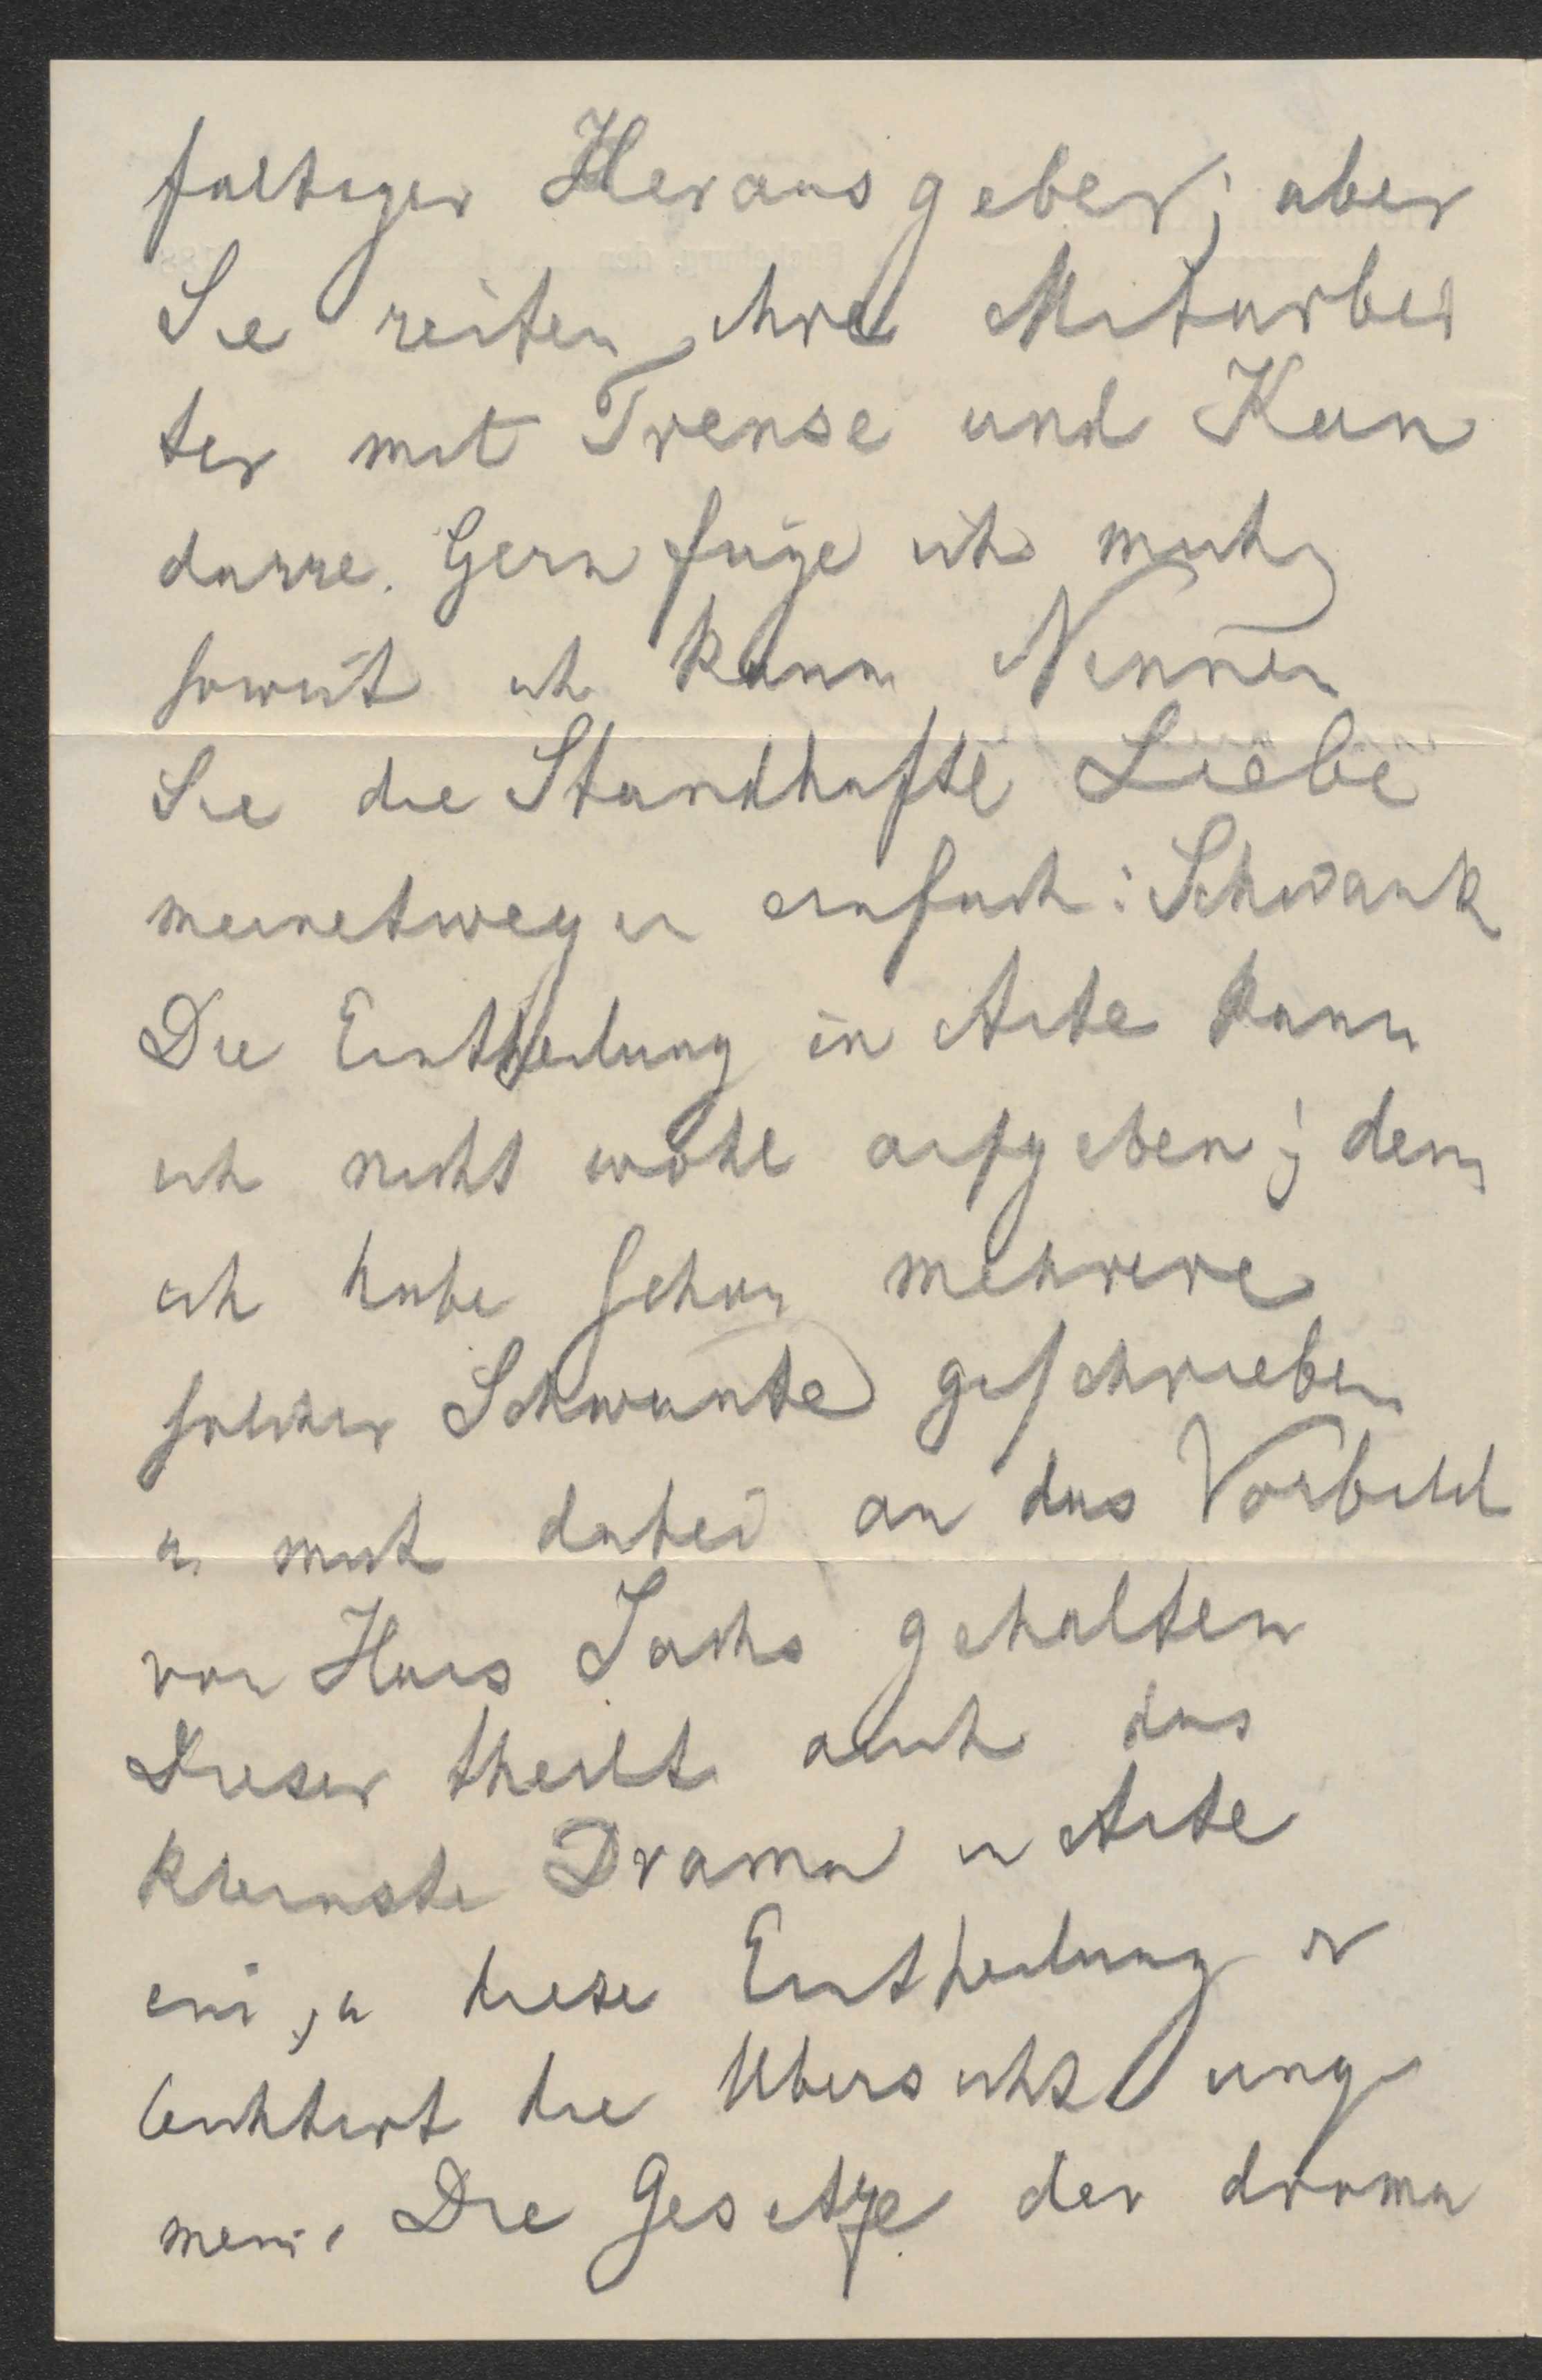 fältiger Herausgeber; aber
Sie reiten ihre Mitarbei
ter mit Trense und Kan
darre. Gern füge ich mich
soweit ich kann Nennen
Sie die Standhafte Liebe
meinetwegen einfach: Schwank
Die Eintheilung in Akte kann
ich nicht wohl aufgeben; denn
ich habe schon mehrere
solcher Schwänke geschrieben
u mich dabei an das Vorbild
von Hans Sachs gehalten
Dieser theilt auch das
kleinste Drama in Akte
ein, u diese Eintheilung er
leichtert die Übersicht unge
mein. Die Gesetze der drama